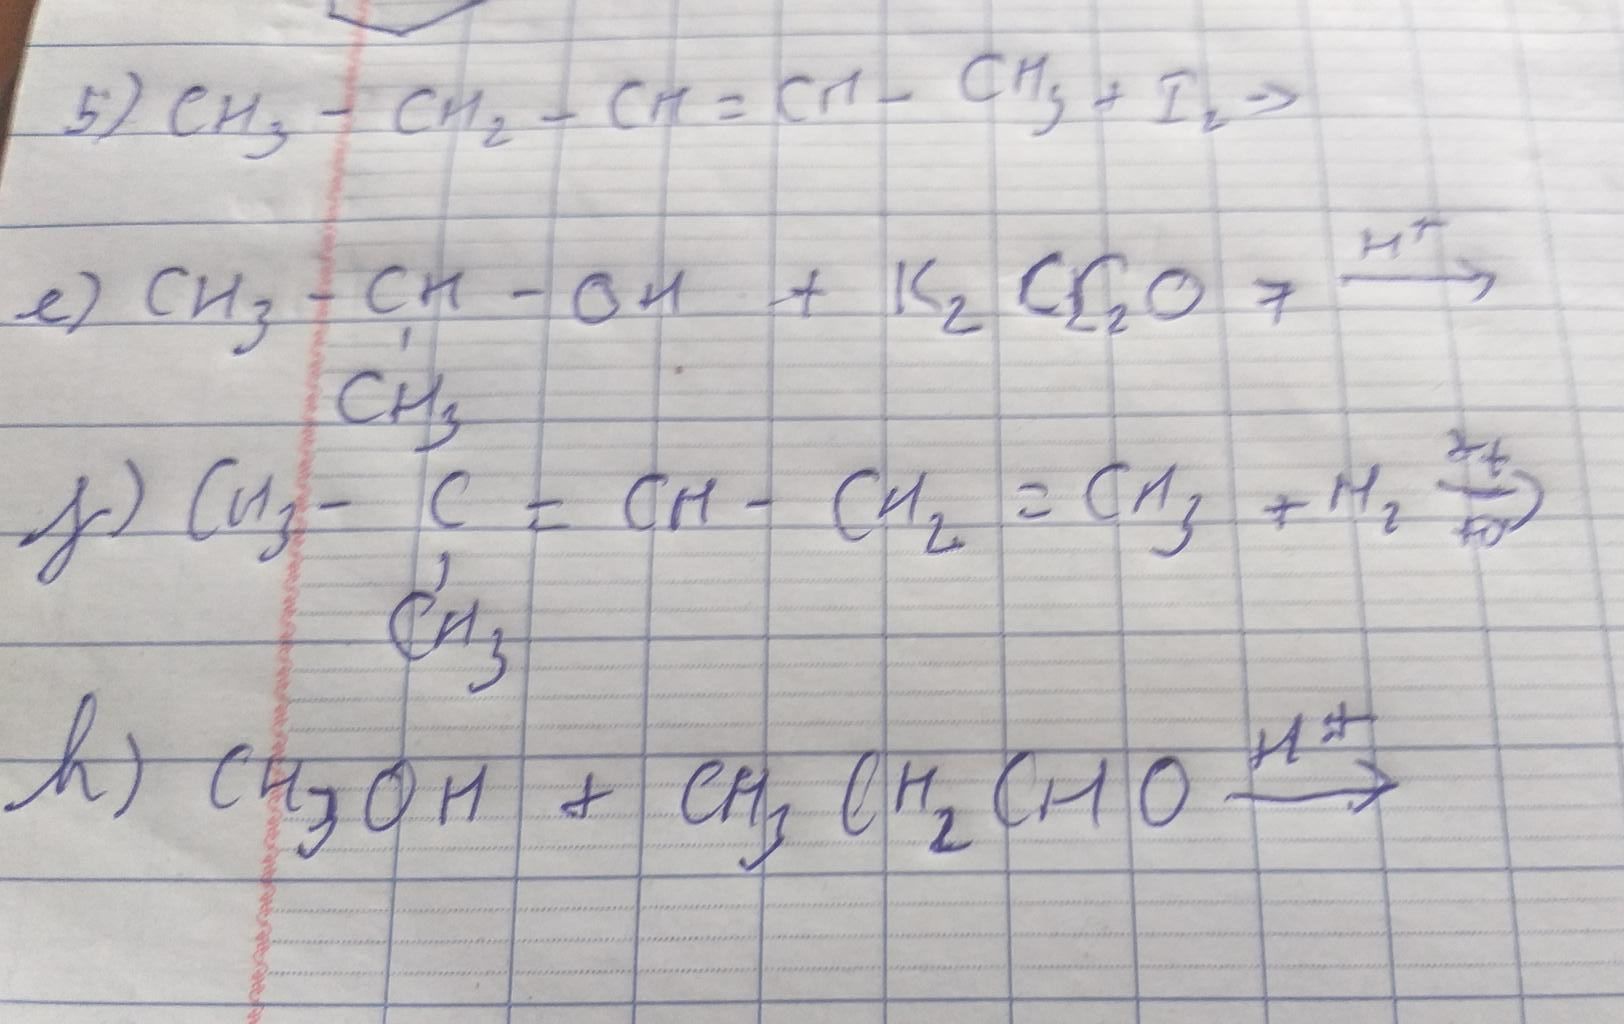 5) CH₃ - CH₂ - CH = CH - CH₃ + I₂ →
e) CH₃ - CH - OH + K₂Cr₂O7 H⁺ →
CH₃
g) CH₃ - C = CH - CH₂ = CH₃ + H₂ →
CH₃
h) CH₃OH + CH₃CH₂CHO H⁺ →